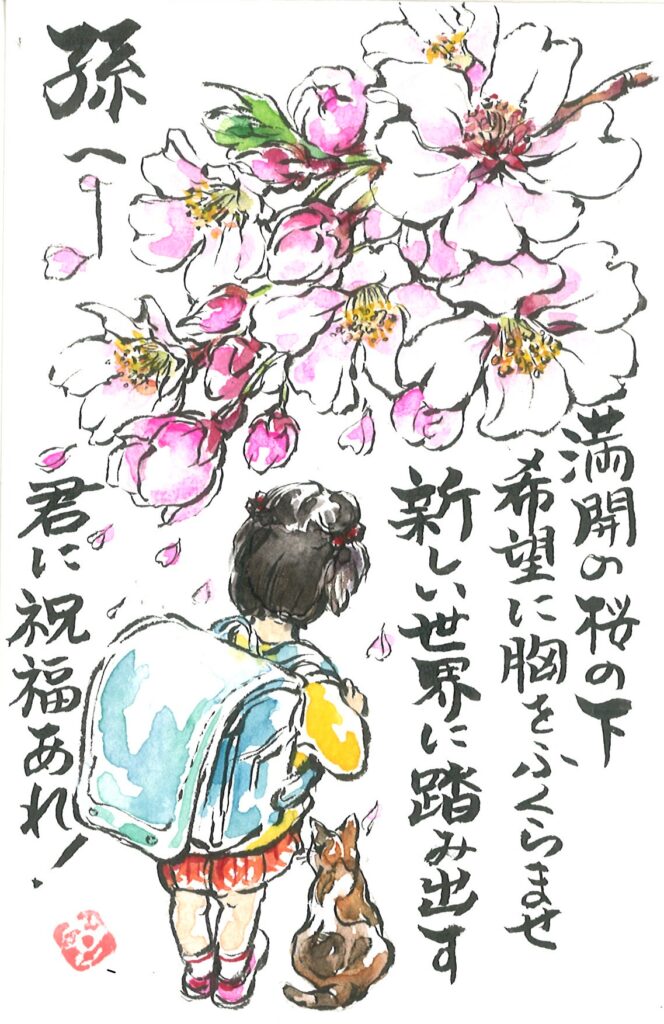 孫へ―
満開の桜の下
希望に胸をふくらませ
新しい世界に踏み出す
君に祝福あれ！